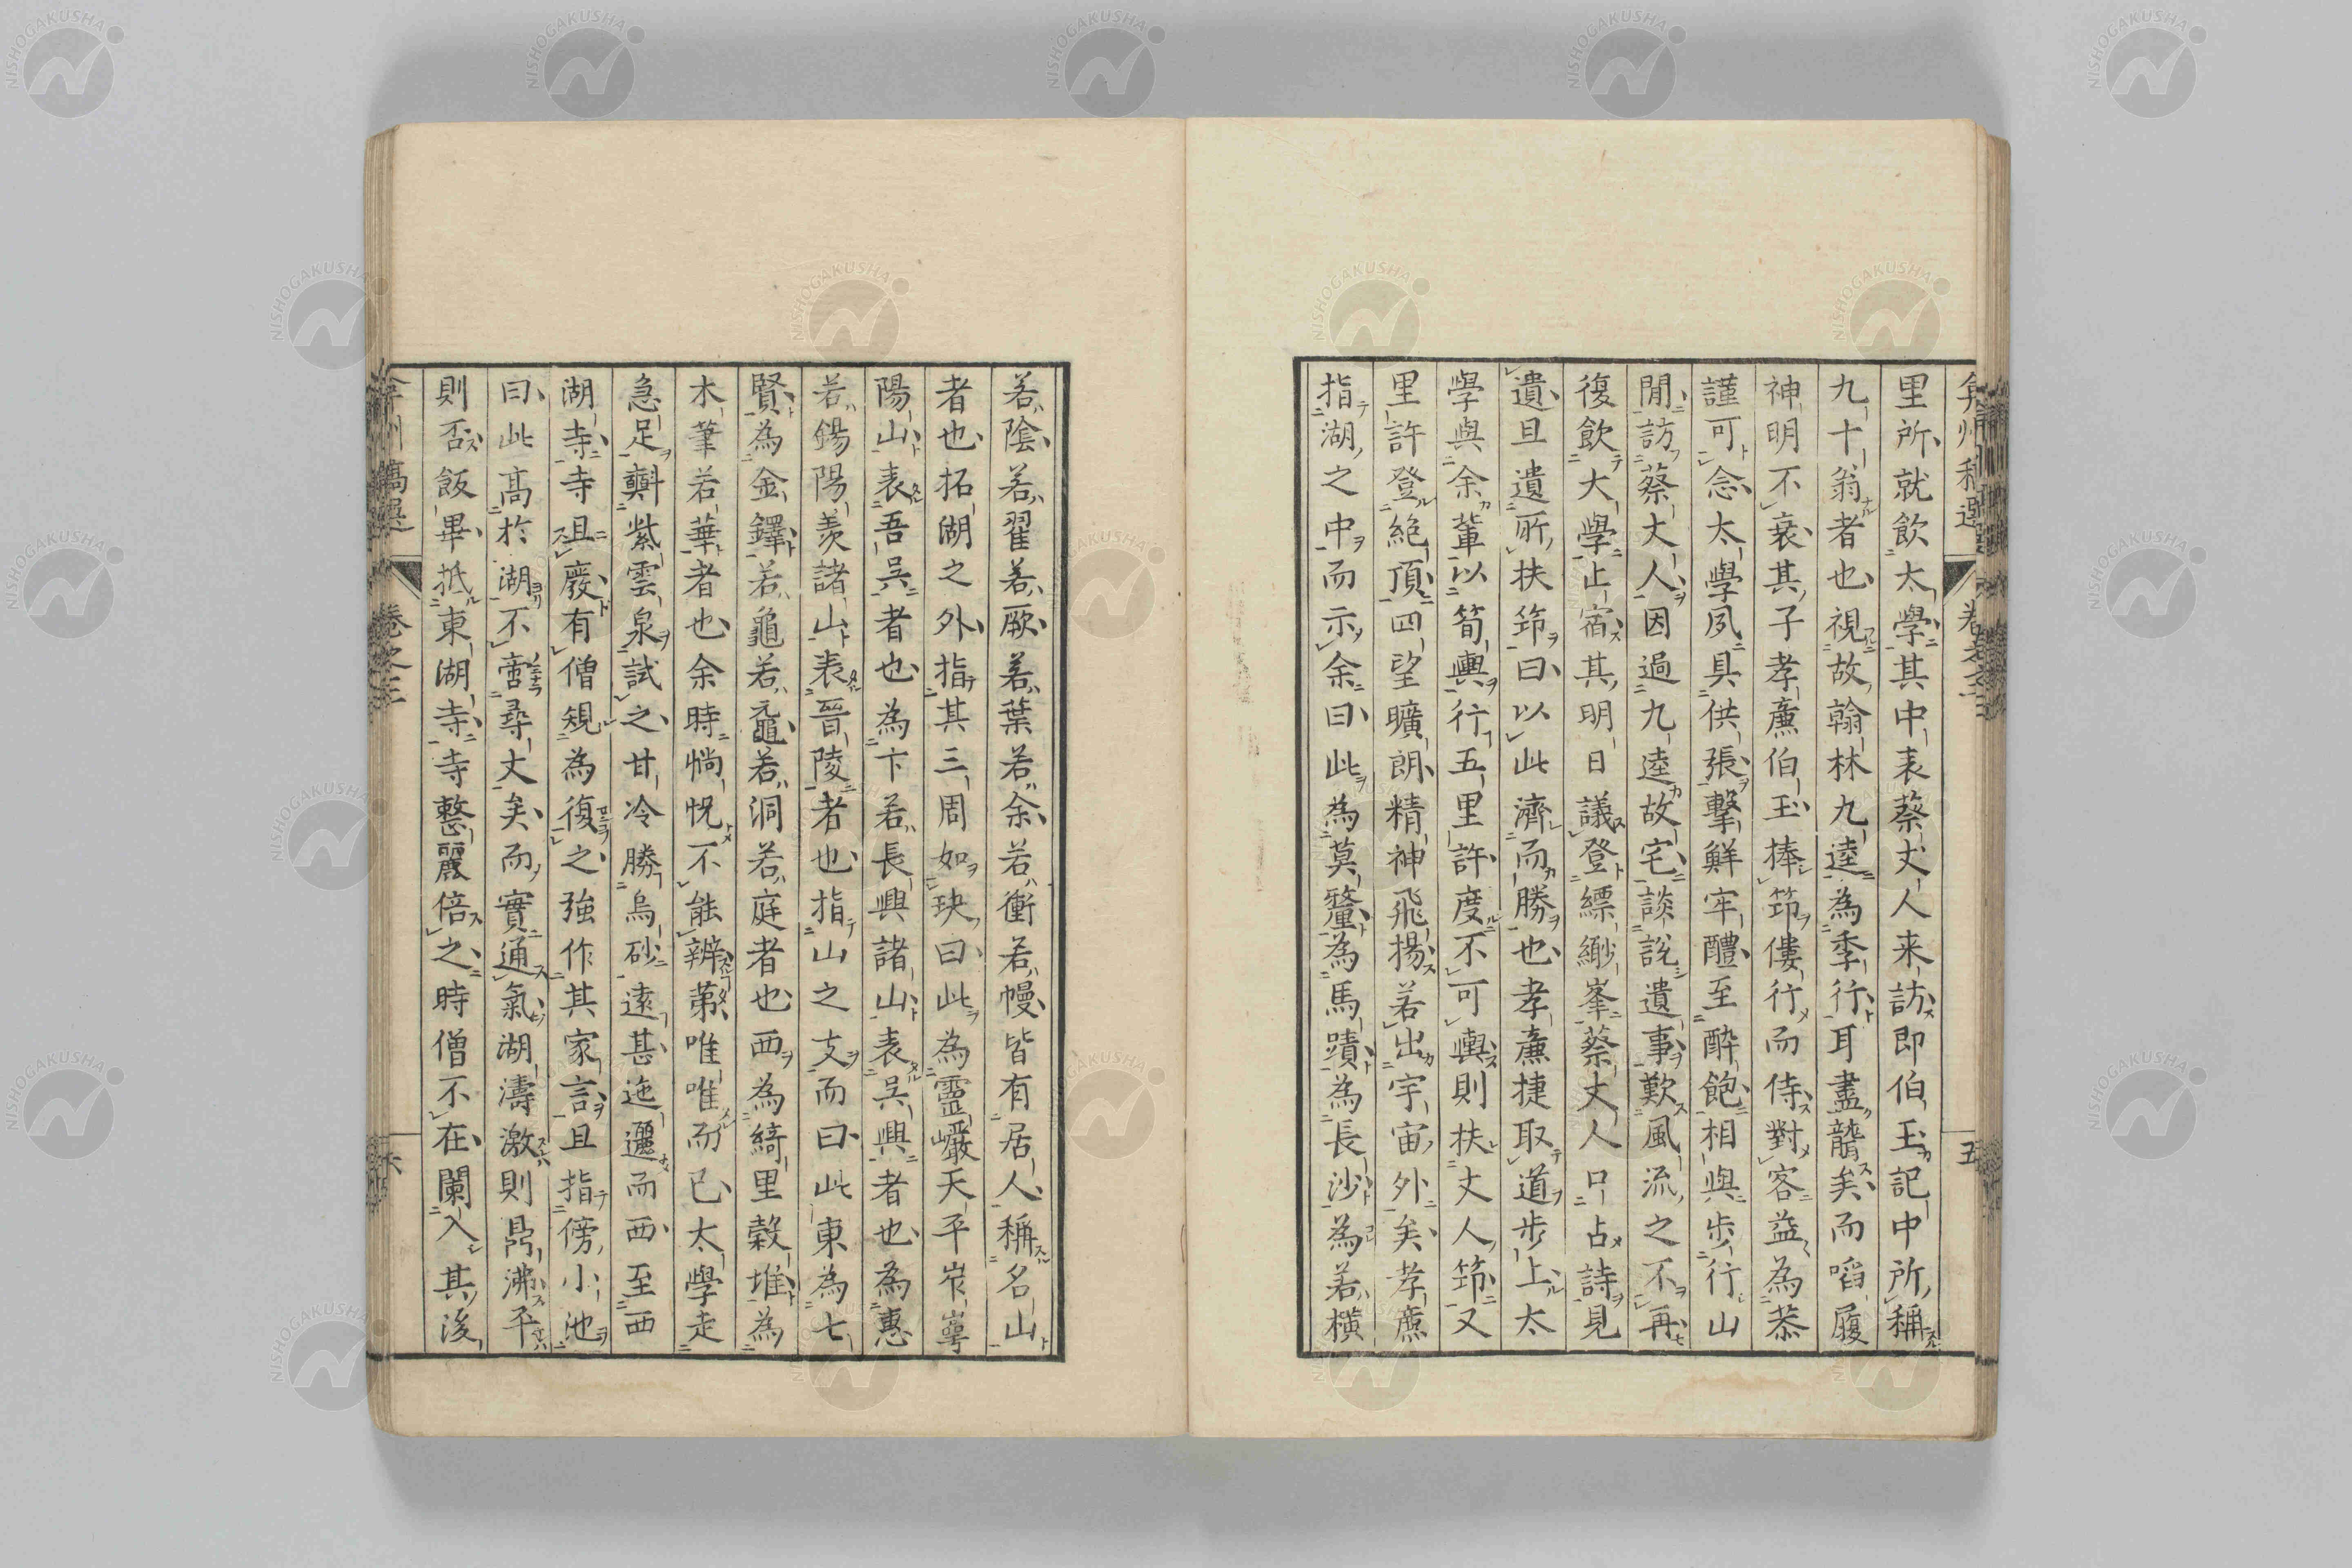 里所就飲太學其中表蔡丈人来訪即伯玉記中所稱
九十翁者也視故翰林九逵為季行耳盡聾矣而啗履
神明不衰其子孝廉伯玉捧笻僂行而侍對客益為恭
謹可念太學夙具供張擊鮮牢醴至酔飽相與歩行山
閒訪蔡大人因過九逵故宅談説遺事歎風流之不再
復飲大學止宿其明日議登縹緲峯蔡丈人口占詩見
遺且遺所扶笻曰以此濟而勝也孝廉捷取道歩上太
學與余輩以筍輿行五里許度不可輿則扶丈人笻又
里許登絶頂四望曠朗精神飛揚若出宇宙外矣孝廉
指湖之中而示余曰此為莫釐為馬蹟為長沙為若橫
若陰若翟若厥若葉若余若衝若幔皆有居人稱名山
者也拓湖之外指其三周如玦曰此為靈巖天平岝崿
陽山表吾吳者也為卞若長興諸山表吳興者也為惠
若錫陽羨諸山表晉陵者也指山之支而曰此東為七
賢為金鐸若龜若黿若洞若庭者也西為綺里穀堆為
木筆若華者也余時惝怳不能辨第唯唯而已太學走
急足㪺紫雲泉試之甘冷勝烏砂遠甚迤邐而西至西
湖寺寺且廢有僧規為復之強作其家言且指傍小池
曰此髙於湖不啻尋丈矣而實通氣湖濤激則鼎沸平
則否飯畢抵東湖寺寺整麗倍之時僧不在闌入其後
卷之三
五
NISHOGAKUSHA